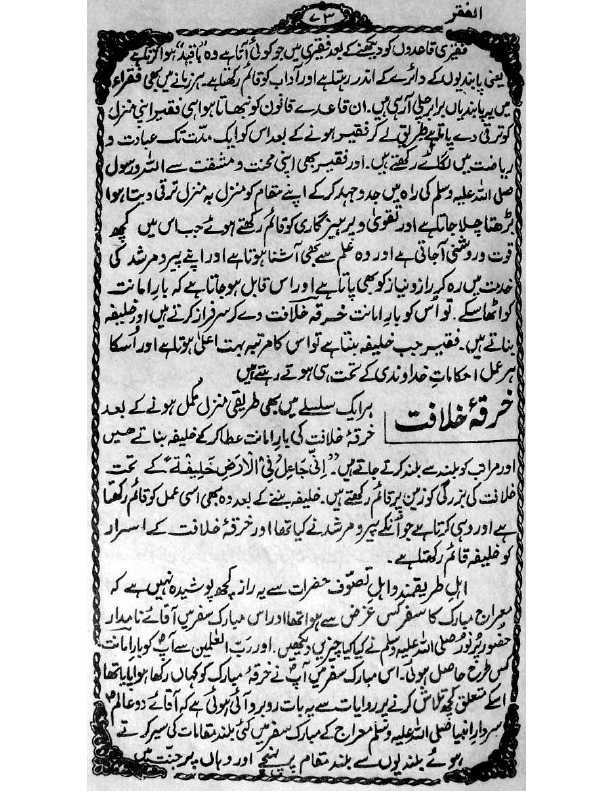 الفقر
۷۳
فقیری قاعدوں کو دیکھنے کے بعد فقیری میں جو کوئی آتا ہے وہ "باقید" ہوا کرتا ہے
یعنی پابندیوں کے دائرے کے اندر رہتا ہے اور آداب کو قائم رکھتا ہے۔ ہر زمانے میں بھی فقراء
میں یہ پابندیاں برابر چلی آرہی ہیں۔ ان قاعدے قانون کو نبھاتا ہوا ہی فقیر اپنی منزل
کو ترقی دے پاتا ہے طریق لے کر فقیر ہونے کے بعد اس کو ایک مدّت تک عبادت و
ریاضت میں لگائے رکھتے ہیں۔ اور فقیر بھی اپنی محنت و مشقت سے اللہ و رسول
صلی اللہ علیہ وسلم کی راہ میں جدوجہد کر کے اپنے مقام کو منزل بہ منزل ترقی دیتا ہوا
بڑھتا چلا جاتا ہے اور تقویٰ و پرہیزگاری کو قائم رکھتے ہوئے جب اس میں کچھ
قوت و روشنی آجاتی ہے اور وہ علم سے بھی آشنا ہوتا ہے اور اپنے پیر و مرشد کی
خدمت میں رہ کر راز و نیاز کو بھی پاتا ہے اور اس قابل ہو جاتا ہے کہ بارِ امانت
کو اٹھا سکے۔ تو اُس کو بارِ امانت خرقۂ خلافت دے کر سرفراز کرتے ہیں اور خلیفہ
بناتے ہیں۔ فقیر جب خلیفہ بنتا ہے تو اس کا مرتبہ بہت اعلیٰ ہوتا ہے اور اُسکا
ہر عمل احکاماتِ خداوندی کے تحت ہی ہوتے رہتے ہیں
خرقۂ خلافت
ہر ایک سلسلے میں بھی طریقی منزل مکمل ہونے کے بعد
خرقۂ خلافت کی بارِ امانت عطا کر کے خلیفہ بناتے ہیں
اور مراتب کو بلند سے بلند کرتے جاتے ہیں۔ "اِنِّیْ جَاعِلٌ فِی الْاَرْضِ خَلِیْفَةً" کے تحت
خلافت کی بزرگی کو زمین پر قائم رکھتے ہیں۔ خلیفہ بننے کے بعد وہ بھی اسی عمل کو قائم رکھتا
ہے اور وہی کرتا ہے جو اُنکے پیر و مرشد نے کیا تھا اور خرقۂ خلافت کے اسرار
کو خلیفہ قائم رکھتا ہے۔
اہلِ طریقمند و اہلِ تصوّف حضرات سے یہ راز کچھ پوشیدہ نہیں ہے کہ
معراج مبارک کا سفر کس غرض سے ہوا تھا اور اس مبارک سفر میں آقائے نامدار
حضور پُر نور صلی اللہ علیہ وسلم نے کیا کیا چیزیں دیکھیں۔ اور ربّ العٰلمین سے آپؐ کو بارِ امانت
کس طرح حاصل ہوئی۔ اس مبارک سفر میں آپؐ نے خرقۂ مبارک کو کہاں رکھا ہوا پایا تھا
اسکے متعلق کچھ تلاش کرنے پر روایات سے یہ بات روبرو آئی ہوئی ہے کہ آقائے دو عالمؐ
سردارِ انبیا صلی اللہ علیہ وسلم معراج کے مبارک سفر میں کئی بلند مقامات کی سیر کرتے
ہوئے بلندیوں سے بلند مقام پر پہنچے اور وہاں پر جنّت میں